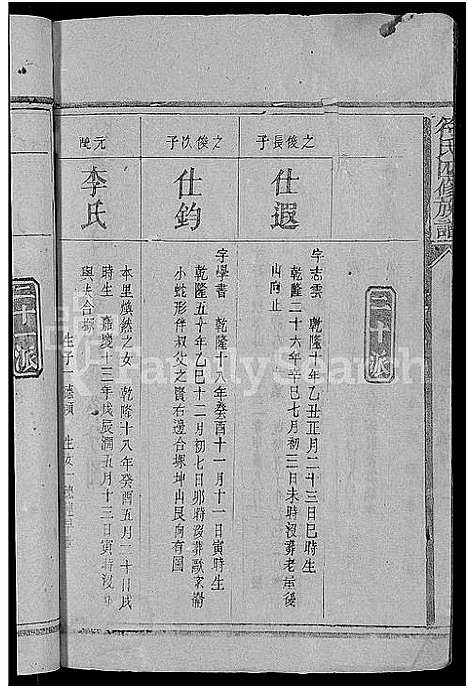 氏四修族譜
三十派
之俊長子
仕遐
字志雲 乾隆十年乙丑正月二十三日巳時生
乾隆二十六年辛巳七月初三日未時沒葬老屋後
山向止
之俊次子
仕鈞
字學書 乾隆十八年癸酉十一月十一日寅時生
乾隆五十年乙巳十二月初七日卯時沒葬
小蛇形伴叔父之賢右邊合塚坤山艮向有圖
元配
李氏
本里煥然之女 乾隆十八年癸酉五月二十日戌
時生 嘉慶十三年戊辰潤五月十三日寅時沒
與夫合塚
三十派
FamilySearch